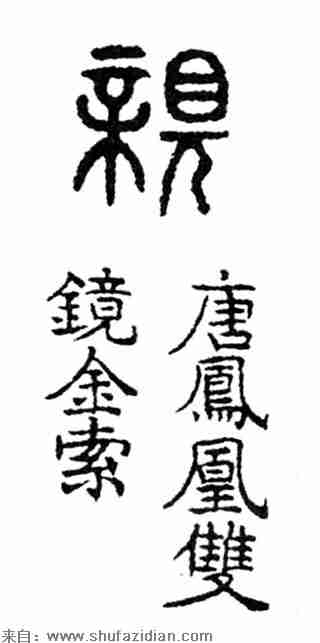 親
唐鳳凰雙
鏡金索
来自：www.shufazidian.com